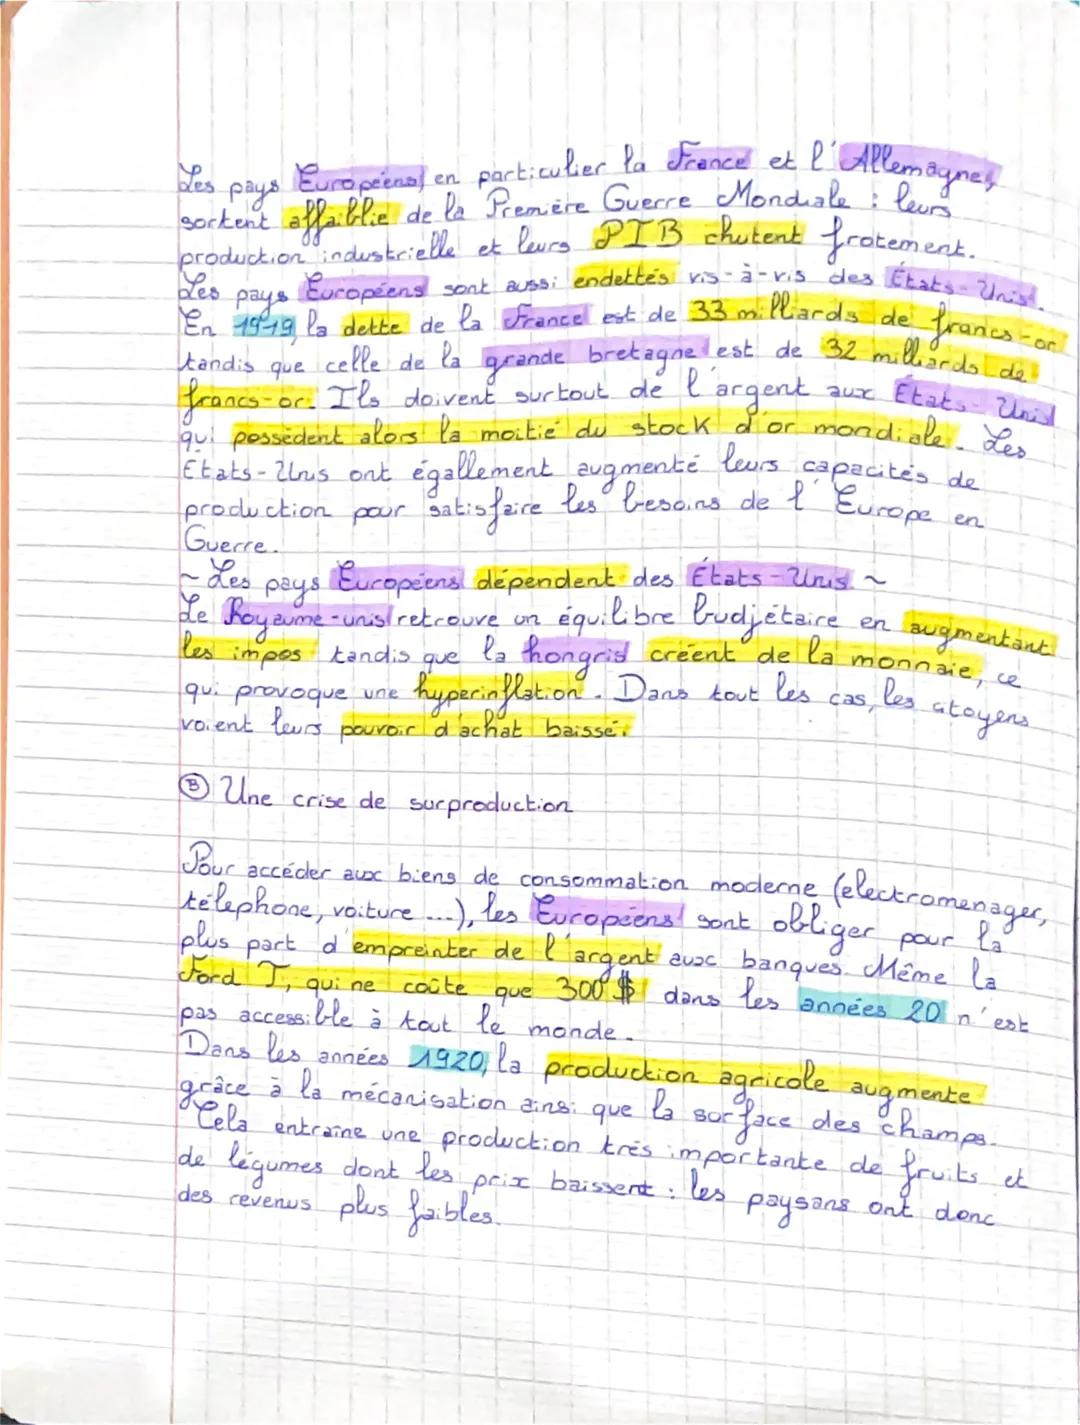 Les pays Européens, en particulier la France et l'Allemagne,
sortent affaiblie de la Première Guerre Mondiale : leurs
production industrielle et leurs PIB chutent frotement.
Les pays Européens sont aussi endettés vis-à-vis des États-Unis.
En 1919, la dette de la France est de 33 milliards de francs-or
tandis que celle de la grande bretagne est de 32 milliards de
francs-or. Ils doivent surtout de l'argent aux États-Unis
qui possèdent alors la moitié du stock d'or mondiale. Les
États-Unis ont égallement augmenté leurs capacités de
production pour satisfaire les besoins de l'Europe en
Guerre.
~ Les pays Européens dépendent des États-Unis ~
Le Royaume-unis retrouve un équilibre budjétaire en augmentant
les impos tandis que la hongris créent de la monnaie, ce
qui provoque une hyperinflation. Dans tout les cas, les citoyens
voient leurs pouvoir d'achat baissé.
Ⓑ Une crise de surproduction
Pour accéder aux biens de consommation moderne (electromenager,
télephone, voiture ...), les Européens sont obliger pour la
plus part d'empreinter de l'argent aux banques. Même la
Ford T, qui ne coûte que 300 $ dans les années 20 n'est
pas accessible à tout le monde.
Dans les années 1920, la production agricole augmente
grâce à la mécanisation ainsi que la surface des champs.
Cela entraine une production très importante de fruits et
de légumes dont les prix baissent : les paysans ont donc
des revenus plus faibles.